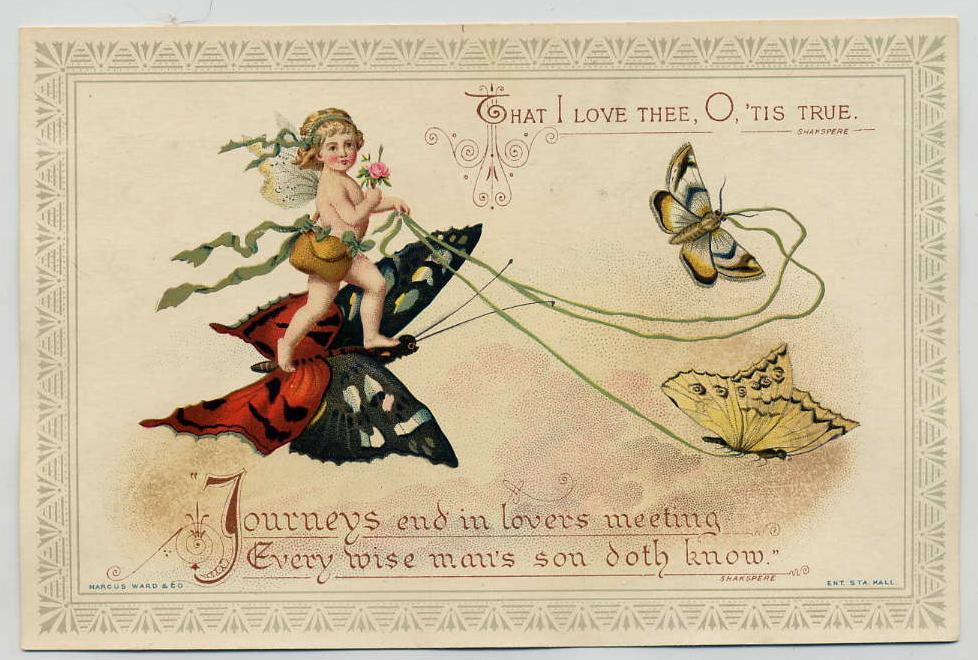 THAT I LOVE THEE, O, 'TIS TRUE.
SHAKSPERE
"Journeys end in lovers meeting
Every wise man's son doth know."
SHAKSPERE
MARCUS WARD & CO
ENT. STA. HALL